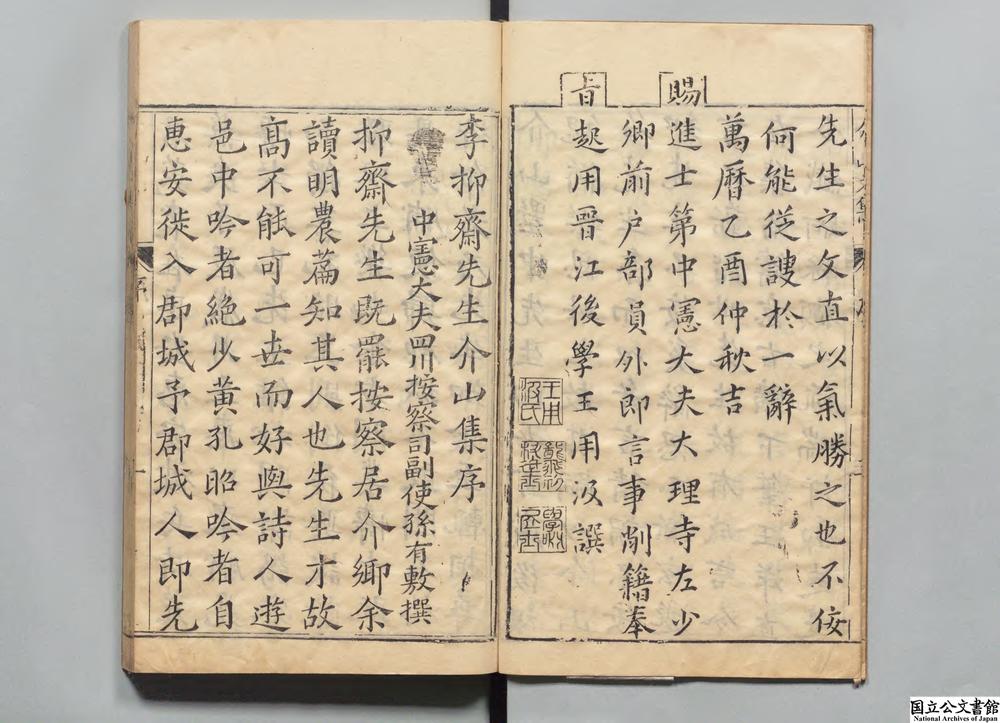 先生之文直以氣勝之也不佞
何能從謏於一辭
萬曆乙酉仲秋吉
賜
進士第中憲大夫大理寺左少
卿前户部員外郎言事削籍奉
旨
起用晉江後學王用汲譔
王用汲氏
李抑齋先生介山集序
中憲大夫四川按察司副使孫有敷撰
抑齋先生既罷按察居介鄉余
讀明農篇知其人也先生才故
高不能可一世而好與詩人遊
邑中吟者絶少黃孔昭吟者自
惠安徙入郡城予郡城人即先
序
一
国立公文書館
National Archives of Japan